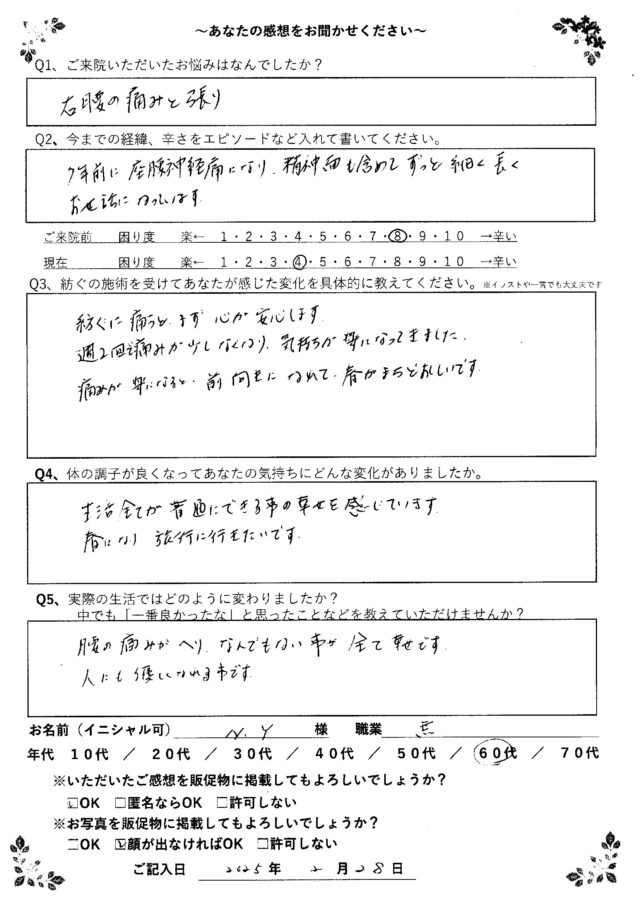 ～あなたの感想をお聞かせください～
Q1、ご来院いただいたお悩みはなんでしたか？
右腰の痛みと張り
Q2、今までの経緯、辛さをエピソードなど入れて書いてください。
7年前に座腰神経痛になり、精神面も含めてずっと細く長く
お世話になっています
ご来院前 困り度 楽← 1・2・3・4・5・6・7・8・9・10 →辛い
現在 困り度 楽← 1・2・3・4・5・6・7・8・9・10 →辛い
Q3、紡ぐの施術を受けてあなたが感じた変化を具体的に教えてください。※イラストや一言でも大丈夫です
紡ぐに通うと、まず心が安心します
週2回で痛みが少しなくなり、気持ちが楽になってきました。
痛みが楽になると、前向きになれて、春がまちどおしいです。
Q4、体の調子が良くなってあなたの気持ちにどんな変化がありましたか。
生活全てが普通にできる事の幸せを感じています。
春になり旅行に行きたいです。
Q5、実際の生活ではどのように変わりましたか？
中でも「一番良かったな」と思ったことなどを教えていただけませんか？
腰の痛みがへり、なんでもない事が全て幸せです。
人にも優しくなれる事です。
お名前（イニシャル可） N.Y 様 職業 無
年代 10代 ／ 20代 ／ 30代 ／ 40代 ／ 50代 ／ 60代 ／ 70代
※いただいたご感想を販促物に掲載してもよろしいでしょうか？
☑OK □匿名ならOK □許可しない
※お写真を販促物に掲載してもよろしいでしょうか？
□OK ☑顔が出なければOK □許可しない
ご記入日 2025年 2月28日